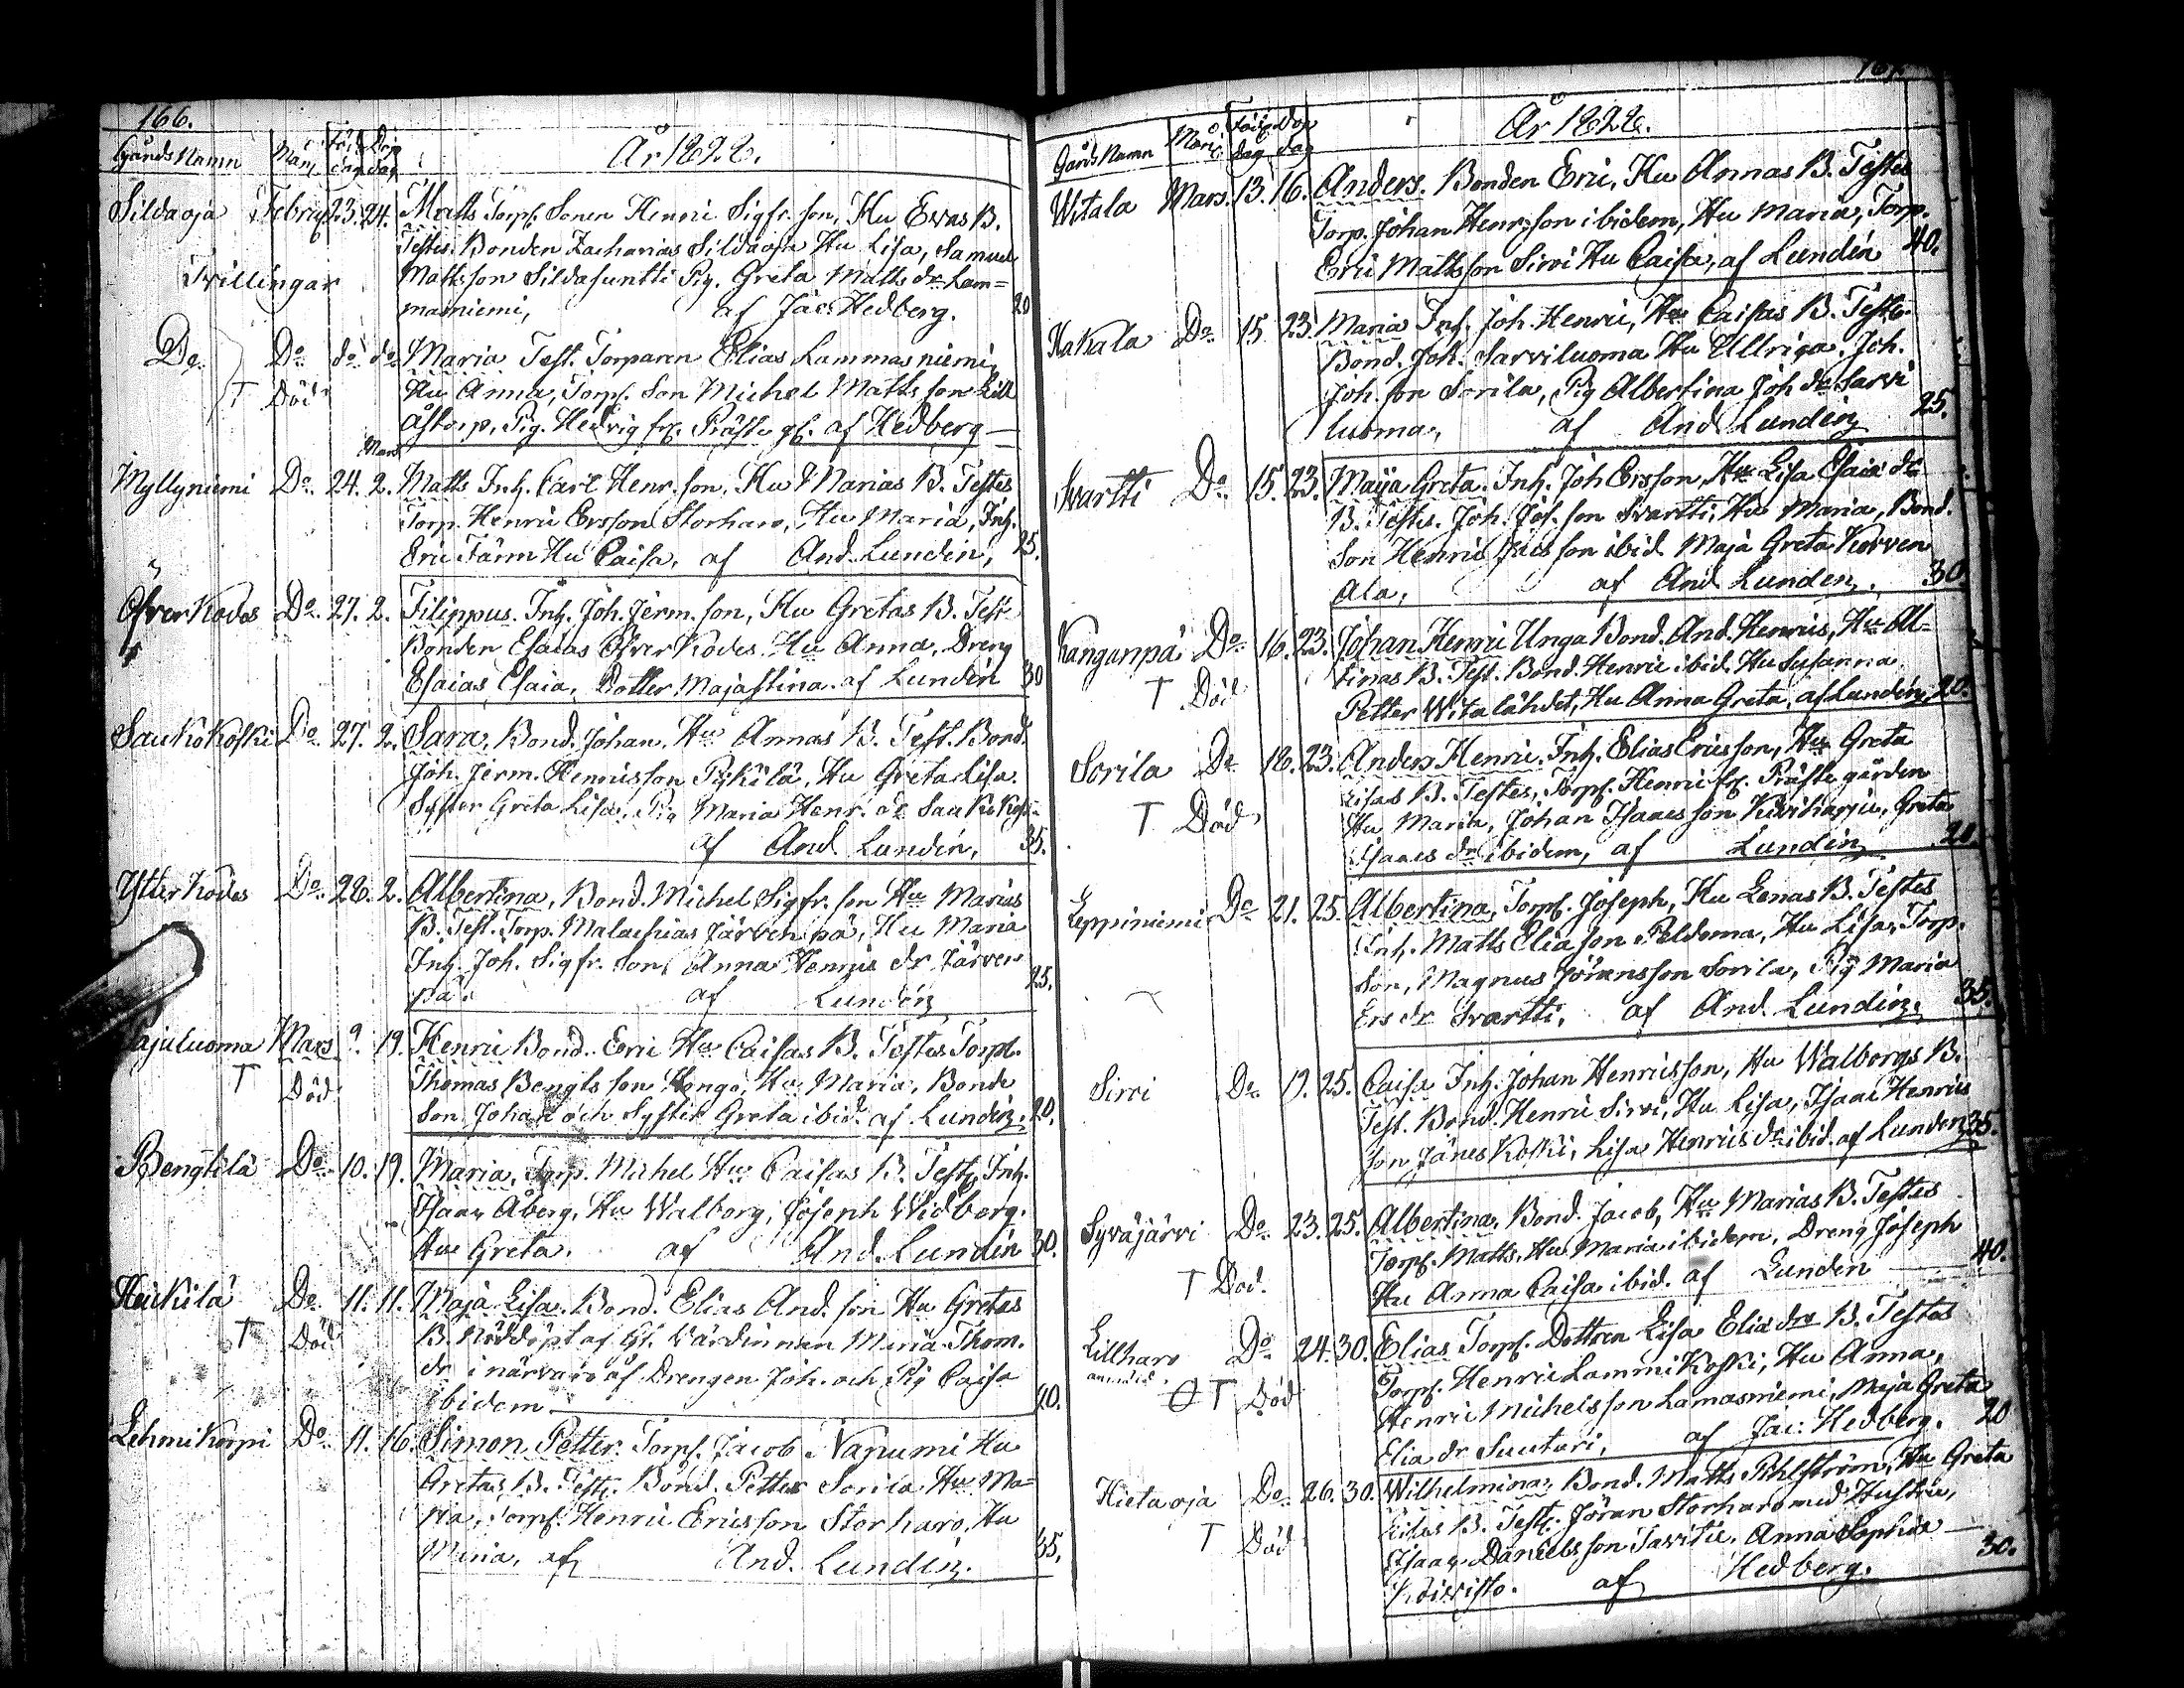 166.
Gårds Namn Mån Föd. dag Dop dag År 1828.
Sildaoja Febru 23. 24. Matts Torpf. Sonen Henric Sigfr. son, Hu Evas B.
Testes. Bonden Zacharias Sildaoja Hu Lisa, Samuel
Tvillingar Mattsson Sildasuntti Pig. Greta Matts dr Lam=
masniemi, af Jac. Hedberg. 20
Do Do do do Maria Test. Torparen Elias Lammasniemi,
T Död Hu Anna, Torpf. Son Michel Mattsson Lill
åstorp, Pig. Hedvig fr. Präste g. af Hedberg —
Mars
Myllyniemi Do 24. 2. Matts Inh. Carl Henr. son, Hu Marias B. Testes
Torp. Henric Ersson Storharo, Hu Maria, Inh.
Eric Färm Hu Caisa, af And. Lundén, 25.
Öfver Kodes Do 27. 2. Filippus. Inh. Joh. Jerm. son, Hu Gretas B. Test.
Bonden Esaias Öfver Kodes Hu Anna, Dreng
Esaias Esaia, Dotter Majastina. af Lundén 30
Saukokoski Do 27. 2. Sara, Bond. Johan, Hu Annas B. Test. Bond.
Joh. Jerm. Henricsson Pykilä, Hu Greta Lisa
Syster Greta Lisa, Pig Maria Henr. dr
af And. Lundén, 35.
Ytter Kodes Do 28. 2. Albertina, Bond. Michel Sigfr. son Hu Marias
B. Test. Torp. Malachias Järvenpä, Hu Maria
Inh. Joh. Sigfr. son, Anna Henrics dr Järven
pä. af Lundén 25.
Pajuluoma Mars 9. 19. Henric Bond. Eric Hu Caisas B. Testes Torp.
T Död Thomas Bengtsson Hu Maria, Bonde
Son Johan och Syster Greta ibid. af Lundén. 20.
Bengtilä Do 10. 19. Maria, Torp. Michel Hu Caisas B. Test. Inh.
Isaac Åberg, Hu Walborg, Joseph Widberg.
Hu Greta. af And. Lundén 30.
Heikilä Do 11. 11. Maja Lisa. Bond. Elias And. son Hu Gretas
T Död B. Nöddöpt af Gl. Värdinnan Maria Thom.
dr i närvaro af Drengen Joh. och Pig Caisa
ibidem — 20.
Lehmikorpi Do 11. 16. Simon Petter. Torpf. Jacob Narumi Hu
Gretas B. Test. Bond. Petter Sorila Hu Ma=
ria, Torpf. Henric Ericsson Storharo, Hu
Maria, af And. Lundén. 35,
Gårds Namn Mån Föd. dag Dop dag År 1828.
Witala Mars. 13. 16. Anders. Bonden Eric, Hu Annas B. Testes
Torp. Johan Henrsson ibidem, Hu Maria, Torp.
Eric Mattsson Sirvi Hu Caisa, af Lundén 40.
Kakala Do 15 23. Maria Inh. Joh. Henric, Hu Caisas B. Testes
Bond. Joh. Sarviluoma Hu Ullrica. Joh.
Joh. son Sorila, Pig Albertina Joh dr Sarvi
luoma, af And. Lundén 25.
Svartti Do 15. 23. Maija Greta. Inh. Joh Ersson, Hu Lisa Esaiæ dr
B. Testes. Joh. Jos. son Svartti, Hu Maria, Bond.
Son Henric Jacsson ibid. Maja Greta Korven
Ala, af And. Lundén. 30.
Kanganpä Do 16. 23. Johan Henric Unga Bond. And. Henrics, Hu Al=
T Död tinas B. Test. Bond. Henric ibid. Hu Susanna
Petter Witalähdet, Hu Anna Greta. af Lundén, 20.
Sorila Do 18. 23. Anders Henric. Inh. Elias Ericsson, Hu Greta
T Död Lisas B. Testes, Torpf. Henric fr. Präste gården
Hu Maria, Johan Isaacsson Kiviharju, Greta
Isaacs dr ibidem, af Lundén 20.
Leppiniemi Do 21. 25. Albertina, Torpf. Joseph, Hu Lenas B. Testes
Inh. Matts Eliasson Peldoma, Hu Lisa, Torp.
Son, Magnus Jöransson Sorila, Pig Maria
Ers dr Svartti, af And. Lundén. 35.
Sirvi Do 19. 25. Caisa Inh. Johan Henricsson, Hu Walborgs B.
Test. Bond. Henric Sirvi, Hu Lisa, Isaac Henrics
son Jäneskoski, Lisa Henrics dr ibid. af Lundén 35.
Syväjärvi Do 23. 25. Albertina. Bond. Jacob, Hu Marias B. Testes
T Död. Torpf. Matts. Hu Maria ibidem, Dreng Joseph
Hu Anna Caisa ibid. af Lundén — 40.
Lillharo Do 24. 30. Elias Torpf. Dottren Lisa Eliæ drs B. Testes
T Död Torpf. Henric Lammikoski, Hu Anna,
Henric Michelsson Lamasniemi, Maja Greta
Elia dr Suutari, af Jac. Hedberg. 20
Hietaoja Do 26. 30. Wilhelmina, Bond. Matts Pihlström, Hu Greta
T Död Lisas B. Test. Jöran Storharo med Hustru,
Isaac Danielsson Savitie, Anna Sophia —
Koivisto. af Hedberg. 30.